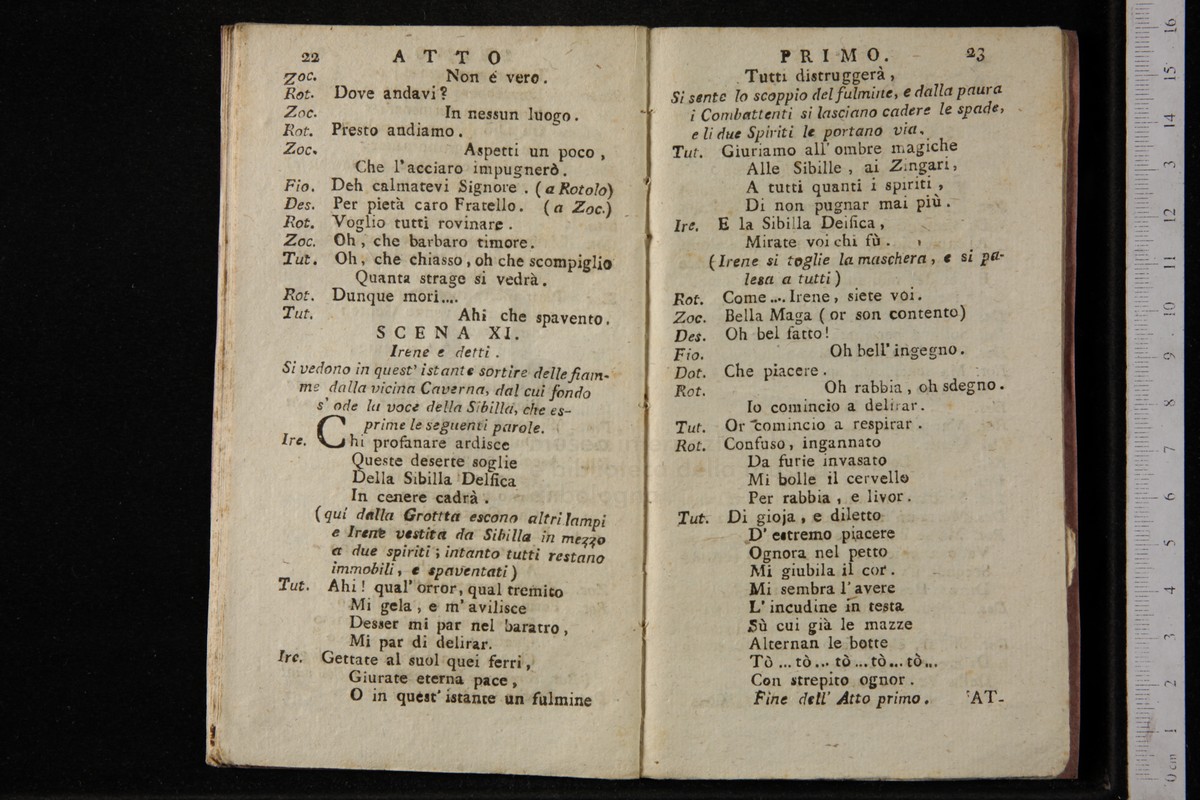 22 ATTO
Zoc. Non é vero.
Rot. Dove andavi?
Zoc. In nessun luogo.
Rot. Presto andiamo.
Zoc. Aspetti un poco,
Che l'acciaro impugnerò.
Fio. Deh calmatevi Signore. (a Rotolo)
Des. Per pietà caro Fratello. (a Zoc.)
Rot. Voglio tutti rovinare.
Zoc. Oh, che barbaro timore.
Tut. Oh, che chiasso, oh che scompiglio
Quanta strage si vedrà.
Rot. Dunque mori....
Tut. Ahi che spavento.
SCENA XI.
Irene e detti.
Si vedono in quest' istante sortire delle fiam-
me dalla vicina Caverna, dal cui fondo
s' ode la voce della Sibilla, che es-
prime le seguenti parole.
Ire. Chi profanare ardisce
Queste deserte soglie
Della Sibilla Delfica
In cenere cadrà.
(qui dalla Grottta escono altri lampi
e Irene vestita da Sibilla in mezzo
a due spiriti; intanto tutti restano
immobili, e spaventati)
Tut. Ahi! qual' orror, qual tremito
Mi gela, e m' avilisce
Desser mi par nel baratro,
Mi par di delirar.
Ire. Gettate al suol quei ferri,
Giurate eterna pace,
O in quest' istante un fulmine
PRIMO. 23
Tutti distruggerà,
Si sente lo scoppio del fulmine, e dalla paura
i Combattenti si lasciano cadere le spade,
e li due Spiriti le portano via.
Tut. Giuriamo all' ombre magiche
Alle Sibille, ai Zingari,
A tutti quanti i spiriti,
Di non pugnar mai più.
Ire. E la Sibilla Deifica,
Mirate voi chi fù.
(Irene si toglie la maschera, e si pa-
lesa a tutti)
Rot. Come.... Irene, siete voi.
Zoc. Bella Maga (or son contento)
Des. Oh bel fatto!
Fio. Oh bell' ingegno.
Dot. Che piacere.
Rot. Oh rabbia, oh sdegno.
Io comincio a delirar.
Tut. Or comincio a respirar.
Rot. Confuso, ingannato
Da furie invasato
Mi bolle il cervello
Per rabbia, e livor.
Tut. Di gioja, e diletto
D' estremo piacere
Ognora nel petto
Mi giubila il cor.
Mi sembra l' avere
L' incudine in testa
Sù cui già le mazze
Alternan le botte
Tò ... tò... tò ... tò... tò...
Con strepito ognor.
Fine dell' Atto primo. AT-